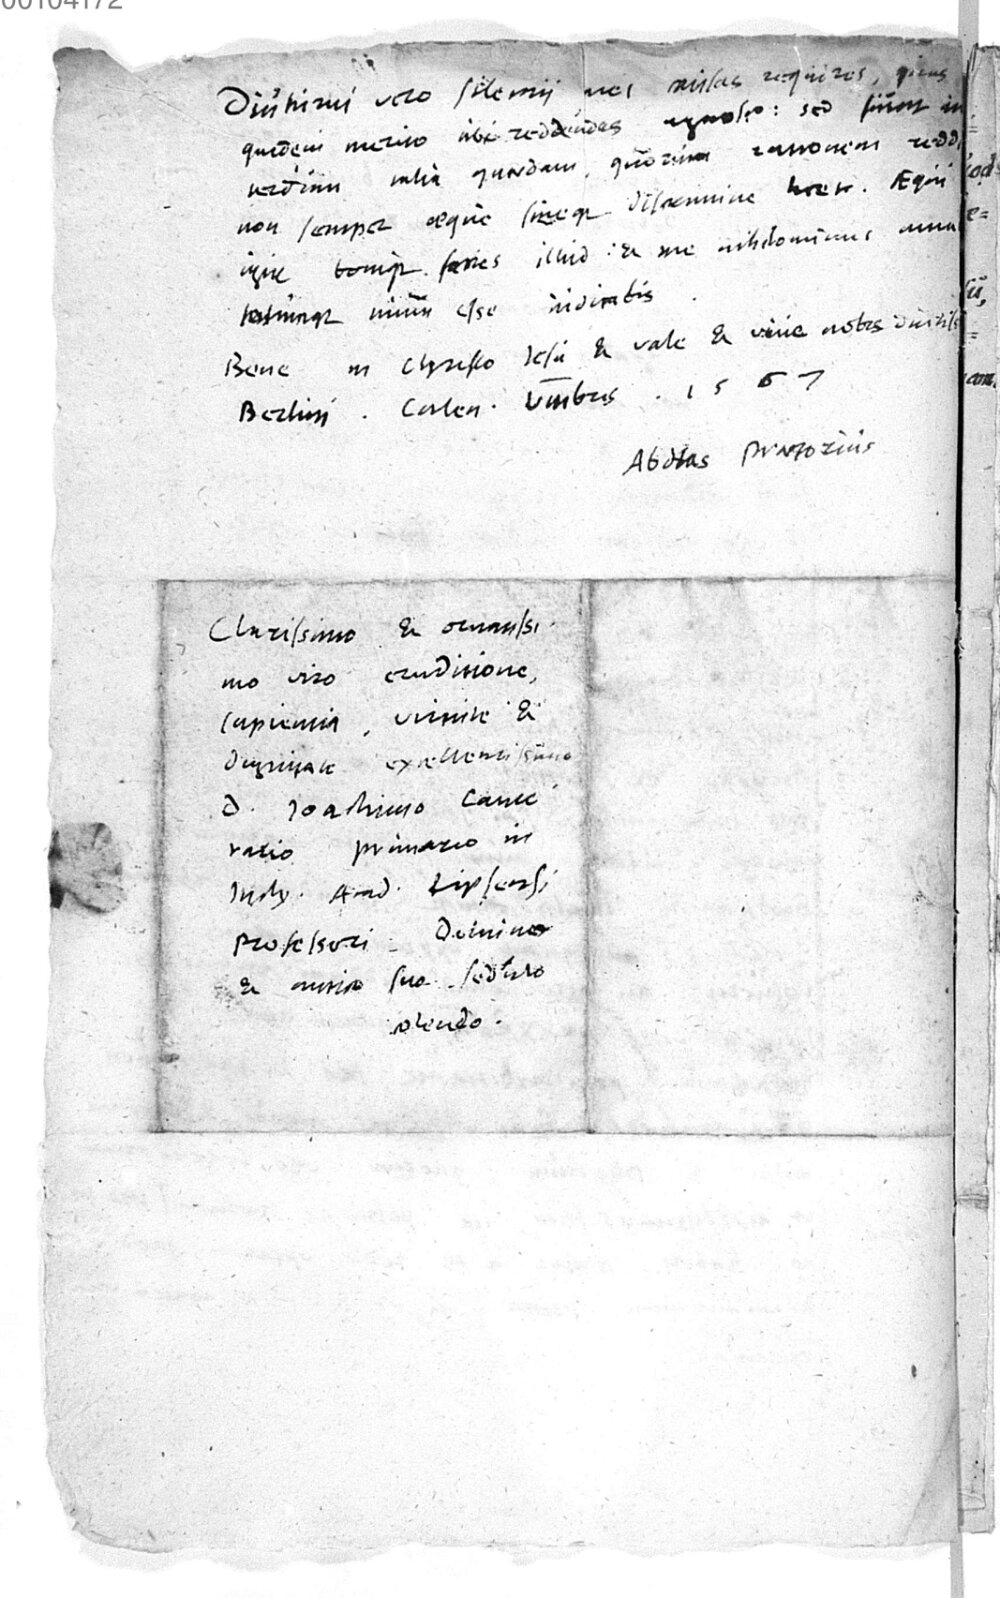 00104172
Diuturni vero silentii mei causas requires, quas
quidem merito tibi reddendas agnosco: sed sunt in
interdum talia quaedam, quorum rationem redd
non semper aeque sineq; discrimine licet. Æqui
igit boniq; facies illud: & me nihilominus aman
tuumq; esse
Bene in Christo Iesu & vale & viue nobis diutiss
Berlini. Calen. VIIIbris. 1567
Abdias Praetorius
Clarissimo & ornatissi
mo viro eruditione,
sapientia, virtute &
dignitate excellentissimo
D. Ioachimo Came
rario primario in
Incly. Acad. Lipsensi
Professori Domino
& amico suo sedulo
colendo.